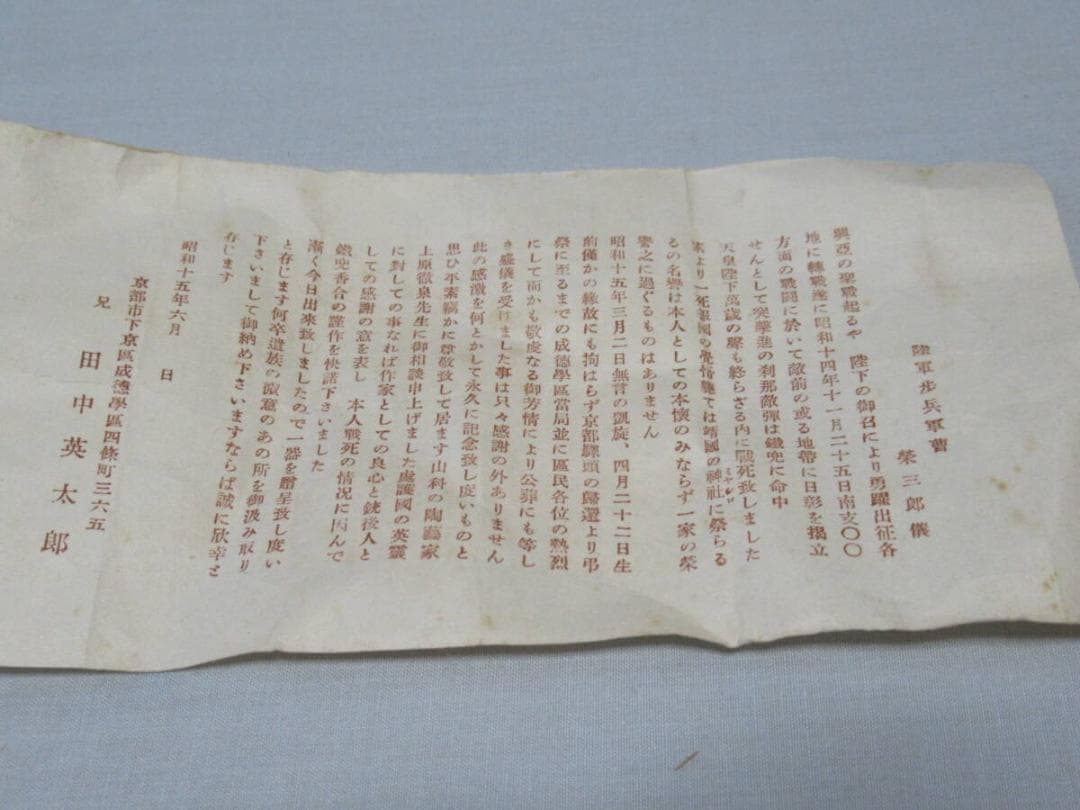 陸軍歩兵軍曹
榮三郎儀
興亞の聖戰起るや　陛下の御召により勇躍出征各
地に轉戰遂に昭和十四年十一月二十五日南支〇〇
方面の戰鬪に於いて敵前の或る地帶に日章を揭立
せんとして突擊進の刹那敵彈は鐵兜に命中
天皇陛下萬歲の聲も終らざる内に戰死致しました
素より一死報國も覺悟雖ては靖國の神社に祭らる
ミヤシロ
るの名譽は本人としての本懷のみならず一家の榮
譽之に過ぐるものはありません
昭和十五年三月二日無言の凱旋、四月二十二日生
前僅かの緣故にも拘はらず京都驛頭の歸還より弔
祭に至るまでの成德學區當局並に區民各位の熱烈
にして而かも敬虔なる御芳情により公葬にも等し
き盛儀を受けました事は只々感謝の外ありません
此の感激を何とかして永久に記念致し度いものと
思ひ平素竊かに尊敬致して居ます山科の陶藝家
上原徹泉先生に御相談申上げました處護國の英靈
に對しての事なれば作家としての良心と銃後人と
しての感謝の意を表し　本人戰死の情況に因んで
鐵兜香合の謹作を快諾下さいました
漸く今日出來致しましたので一器を贈呈致し度い
と存じます何卒遺族の微意のあの所を御汲み取り
下さいまして御納め下さいますならば誠に欣幸と
存じます
昭和十五年六月　日
京都市下京區成德學區四條町三六五
兄　田中英太郎